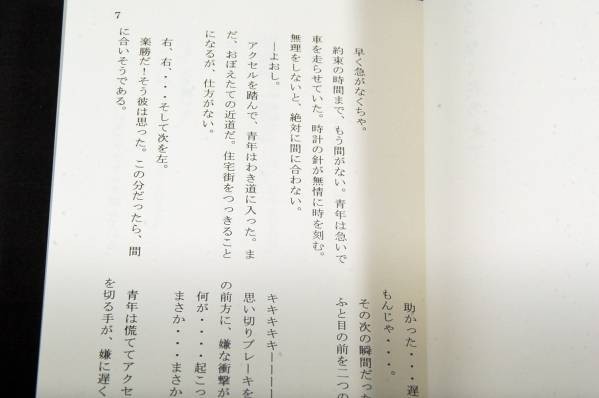 早く急がなくちゃ。
約束の時間まで、もう間がない。青年は急いで
車を走らせていた。時計の針が無情に時を刻む。
無理をしないと、絶対に間に合わない。
―よおし。
アクセルを踏んで、青年はわき道に入った。ま
だ、おぼえたての近道だ。住宅街をつっきること
になるが、仕方がない。
右、右、・・・そして次を左。
楽勝だ！そう彼は思った。この分だったら、間
に合いそうである。
助かった・・・遅
もんじゃ・・・。
その次の瞬間だった
ふと目の前を二つの
キキキキキーーーー
思い切りブレーキを
の前方に、嫌な衝撃が
何が・・・・起こっ
まさか・・・まさか
青年は慌ててアクセ
を切る手が、嫌に遅く
7